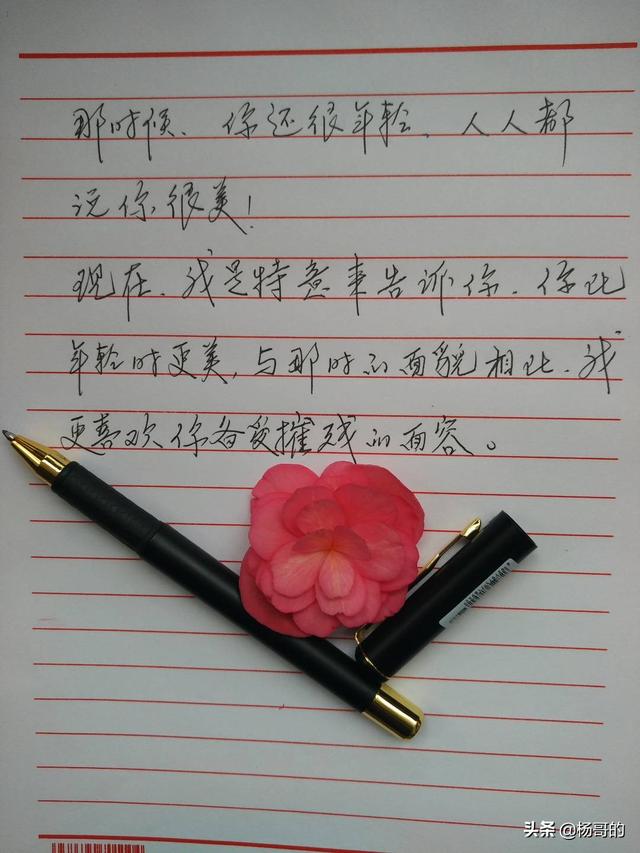 那时候、你还很年轻、人人都
说你很美!
现在、我是特意来告诉你、你比
年轻时更美,与那时的面貌相比、我
更喜欢你备受摧残的面容。
头条 @杨哥的